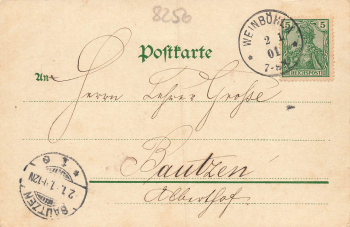 8256
WEINBÖHLA
2 1
01
7-8N
5 5
REICHSPOST
Postkarte
An
Herrn Lehrer Große
Bautzen
Alberthof
BAUTZEN
2.1.